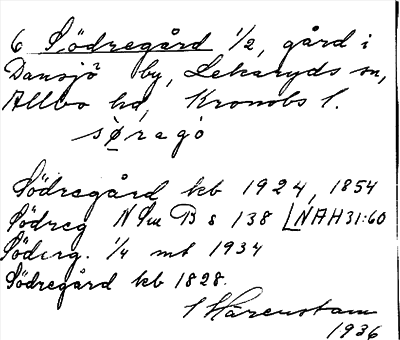 6 Södregård 1/2, gård i
Dansjö by, Lekaryds sn,
Allbo hd, Kronobs l.
sø̀ragò
Södregård kb 1924, 1854
Södreg N Sm B s 138 [NAH31:60
Söderg. 1/4 mt 1934
Södregård kb 1828.
Härenstam
1936